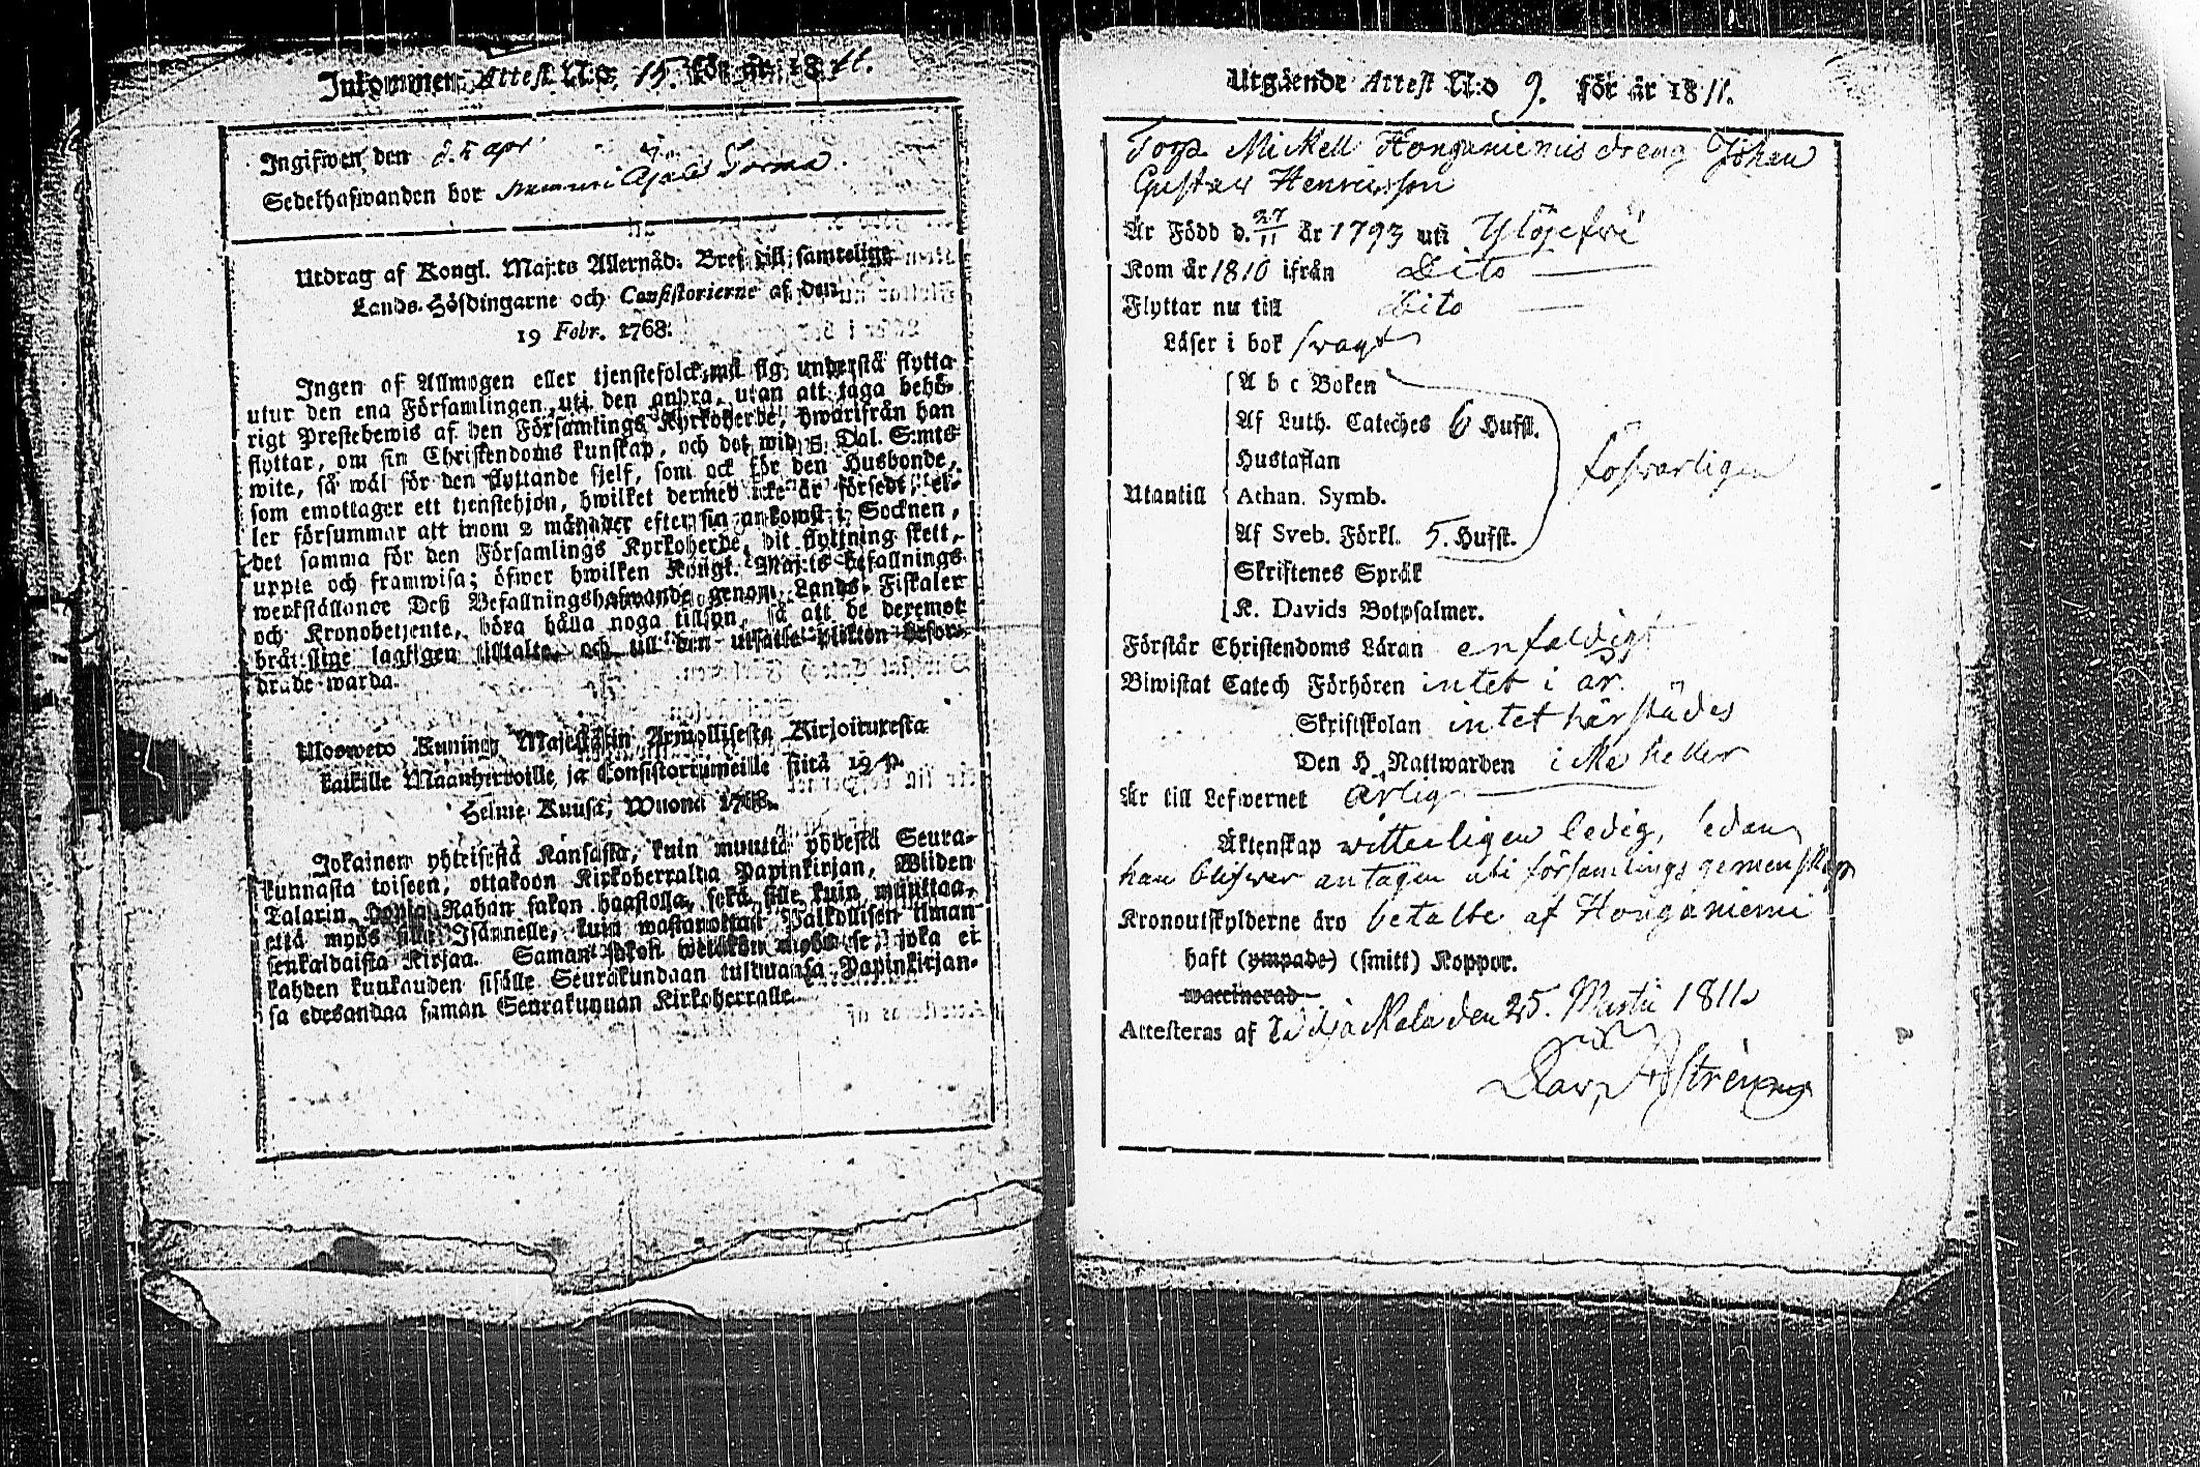 Inkommen Attest N:o 15. för år 1811.
Ingifwen den d. 5 apr
Sedelhafwanden bor
Utdrag af Kongl. Maj:ts Allernåd. Bref till samtelige
Lands-Höfdingarne och Consistorierne af den
19 Febr. 1768.
Ingen af Allmogen eller tjenstefolck må sig understå flytta
utur den ena Församlingen uti den andra, utan att taga behö-
rigt Prestebewis af den Församlings Kyrkoherde, hwarifrån han
flyttar, om sin Christendoms kunskap, och det wid 5 Dal. S:mts
wite, så wäl för den flyttande sjelf, som ock för den Husbonde,
som emottager ett tjenstehjon, hwilket dermed icke är försedt, el-
ler försummar att inom 2 månader efter sin ankomst i Socknen,
det samma för den Församlings Kyrkoherde, dit flyttning skett,
uppte och framwisa; öfwer hwilken Kongl. Maj:ts befallnings
werkställande Deß Befallningshafwande genom Lands-Fiskaler
och Kronobetjente, böra hålla noga tillsyn, så att de deremot
bråttslige lagligen tilltalte och till den utsatte plikten befor-
drade warda.
Ulosweto Kuning Majestätin Armollisesta Kirjoituxesta
kaikille Maanherroille ja Consistoriumeille siitä 19 p.
Helme Kuusa, Wuonna 1768.
Jokainen yhteisestä Kansasta, kuin muuttä yhdestä Seura-
kunnasta toiseen, ottakoon Kirkoherralda Papinkirjan, Wiiden
Talarin Hopia Rahan sakon haastolla, sekä sille kuin muuttaa,
että myös sille Isännelle, kuin wastanottaa Palkollisen ilman
senkaldaista Kirjaa. Saman sakon wetäkön myös se, joka ei
kahden kuukauden sisälle Seurakundaan tultuansa Papinkirjan-
sa edesandaa saman Seurakunnan Kirkoherralle.
Utgående Attest N:o 9. för år 1811.
Torp. Mickell Honganiemis dreng Johan
Gustav Henricsson
Är Född d. 27/11 år 1793 uti Ylöjefvi
Kom år 1810 ifrån Dito
Flyttar nu till Dito
Läser i bok svagt
A b c Boken
Af Luth. Cateches 6 Hufst.
Hustaflan
Utantill Athan. Symb.
Af Sveb. Förkl. 5. Hufst.
Skriftenes Språk
K. Davids Botpsalmer.
försvarligen
Förstår Christendoms Läran enfaldigt
Biwistat Catech Förhören intet i år.
Skriftskolan intet härstädes
Den H. Nattwarden icke heller
Är till Lefwernet ärlig
Äktenskap witterligen ledig, sedan
han blifwer antagen uti församlings gemenskap
Kronoutskylderne äro betalte af Honganiemi
haft (ympade) (smitt) Koppor.
waccinerad
Attesteras af den 25. Martii 1811.